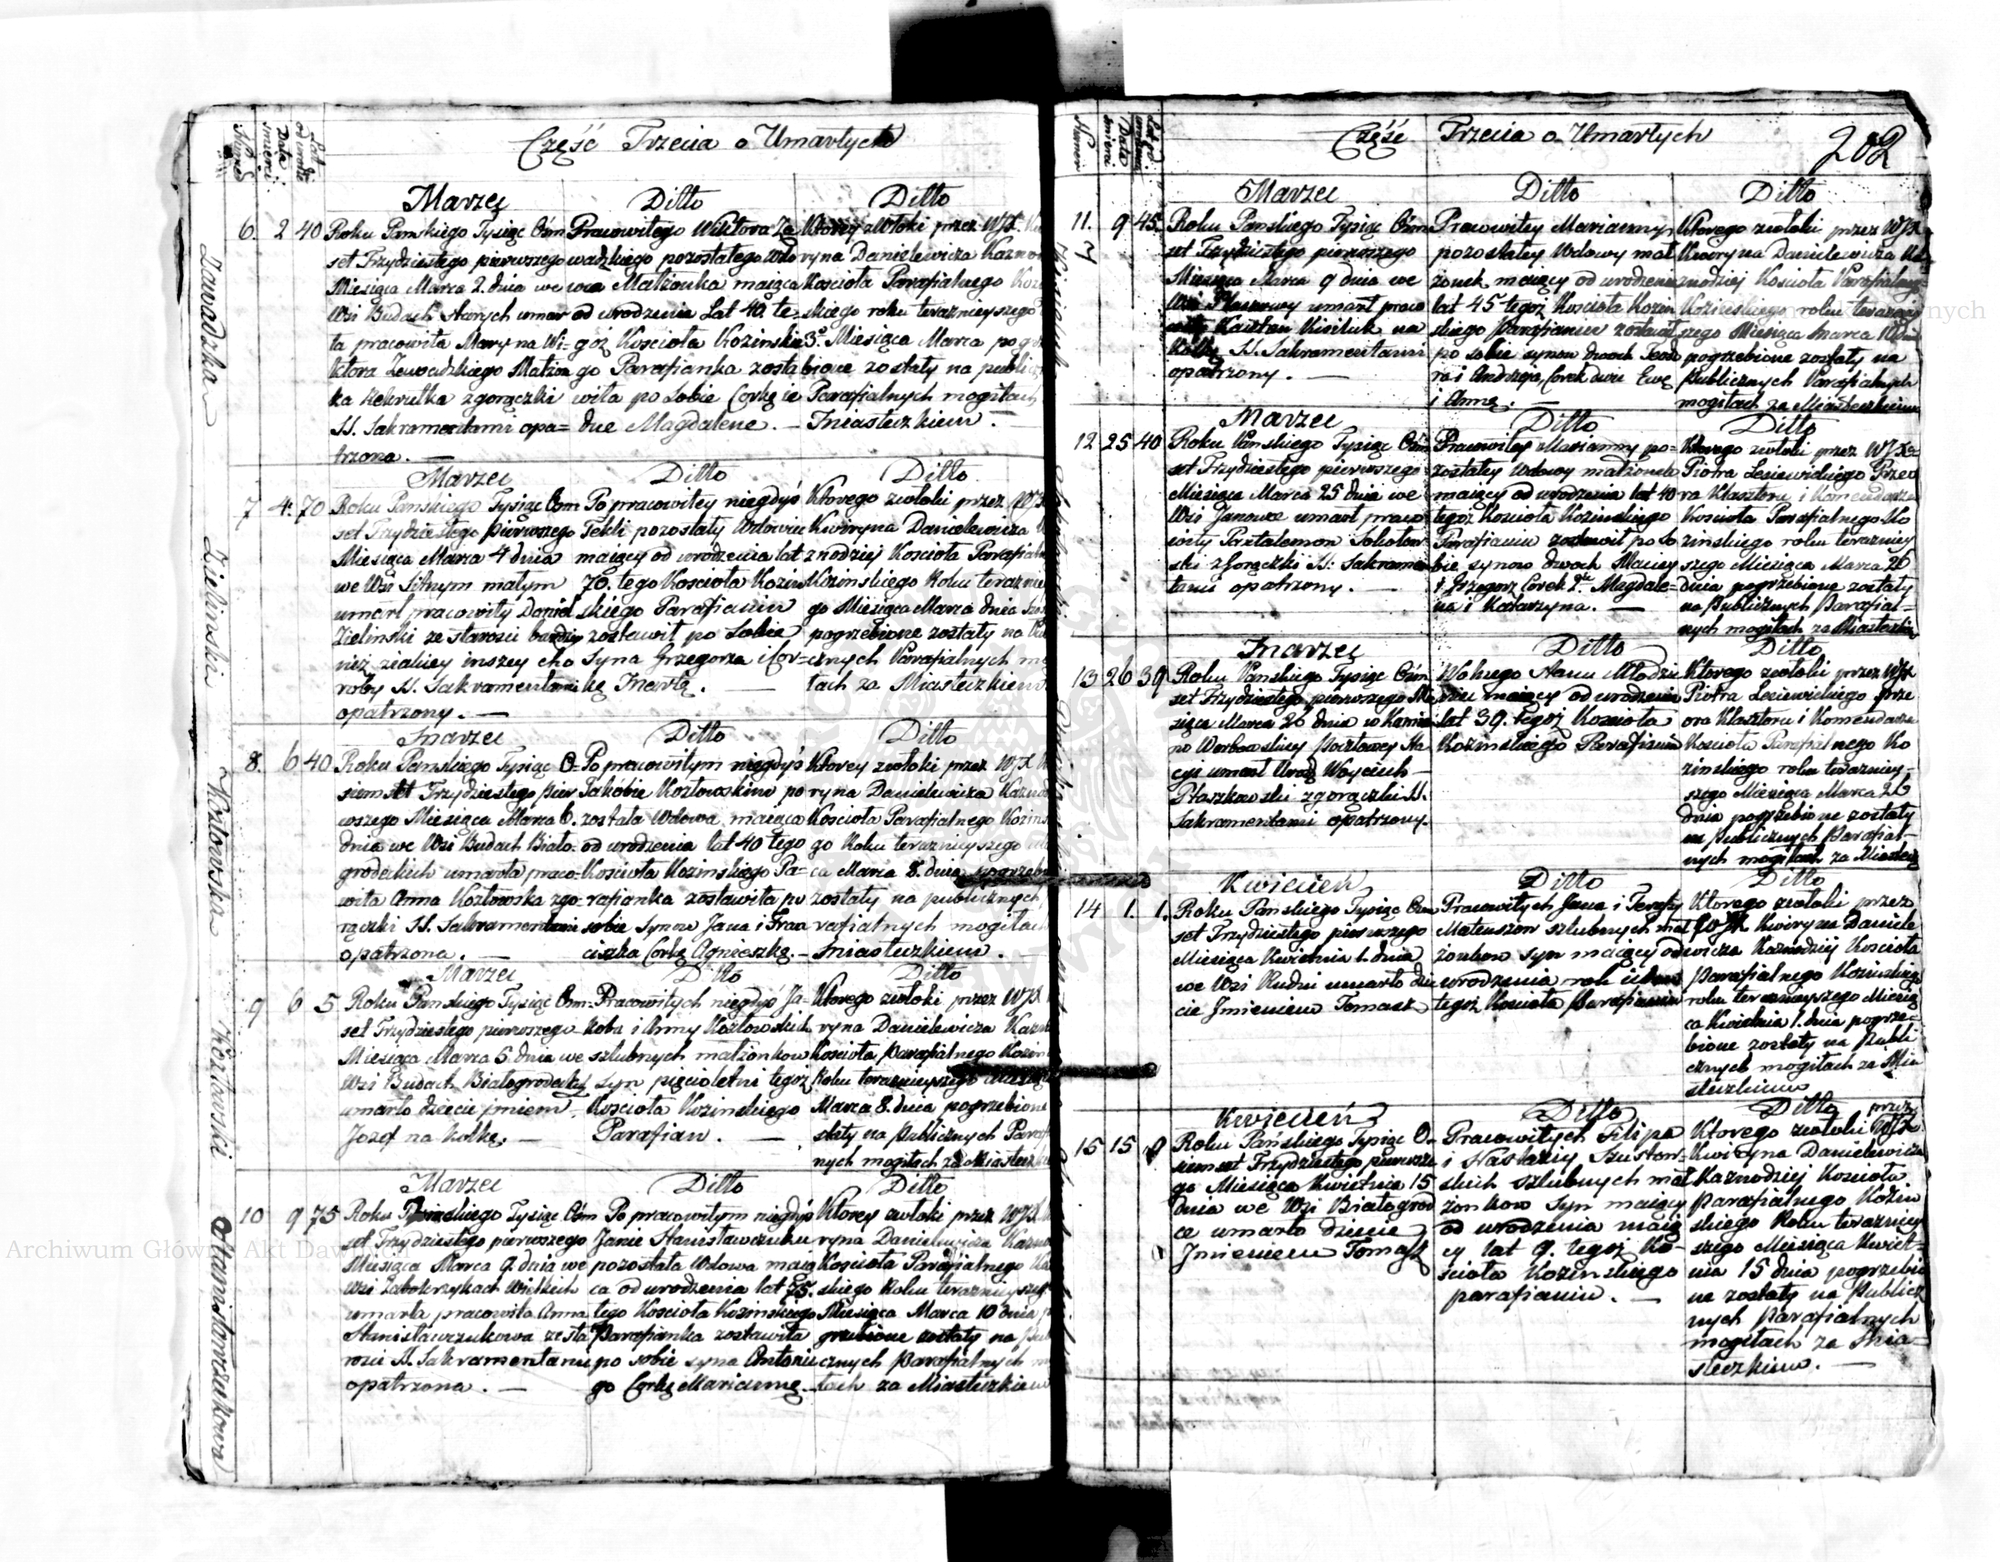 Część Trzecia o Umarłych
Marzec
6. 2 40 Roku Pańskiego Tysiąc Ośm
set Trzydziestego pierwszego
Miesiąca Marca 2. dnia we
Wsi Budach Starych umar
ła pracowita Maryna Wi-
ktora Zawadzkiego Małżon
ka Rekrutka z gorączki
SS. Sakramentami opa=
trzona. —
Ditto
Pracowitego Wiktora Za
wadzkiego pozostałego Wdo
wca Małżonka maiąca
od urodzenia Lat 40. te-
goż Kościoła Kozinskie
go Parafianka zosta
wiła po Sobie Corkę ie
dne Magdalene. —
Ditto
Ktorey zwłoki przez WJX.
ryna Danielewicza Kazno
Kościoła Parafialnego
skiego roku teraznieyszego
3. Miesiąca Marca pog
bione zostały na public
Parafialnych mogiłach
Miasteczkiem. —
Zawadzka
Marzec
7 4. 70 Roku Pańskiego Tysiąc Ośm
set Trzydziestego pierwszego
Miesiąca Marca 4 dnia
we Wsi Sitnym małym
umarł pracowity Daniel
Zieliński ze starosci bardziey
niż iakiey inszey cho
roby SS. Sakramentami
opatrzony. —
Ditto
Po pracowitey niegdyś
Tekli pozostały Wdowiec
maiący od urodzenia lat
70. tego Kościoła Kozin
skiego Parafianin
zostawił po Sobie
Syna Grzegorza i cor-
kę Marię. —
Ditto
Ktorego zwłoki przez WJX
Kwiryna Danielewicza
znodziei Kościoła Parafial
Kozinskiego Roku teraznie
go Miesiąca Marca dnia
pogrzebione zostały na
cznych Parafialnych mo
łach za Miasteczkiem
Zieliński
Marzec
8. 6 40 Roku Pańskiego Tysiąc O-
siemset Trzydziestego pier
wszego Miesiąca Marca 6.
dnia we Wsi Budach Biało-
grodeckich umarła praco-
wita Anna Kozłowska z go-
rączki SS. Sakramentami
opatrzona. —
Ditto
Po pracowitym niegdyś
Jakóbie Kozłowskim po
została Wdowa maiąca
od urodzenia lat 40 tego
Kościoła Kozinskiego Pa-
rafianka zostawiła po
sobie Synow Jana i Fran
ciszka Corkę Agnieszkę. —
Ditto
Ktorey zwłoki przez WJX
ryna Danielewicza Kazno
Kościoła Parafialnego Kozins
go Roku teraznieyszego
ca Marca 8. dnia pogrzebi
zostały na publicznych
rafialnych mogiłach
Miasteczkiem. —
Kozłowska
Marzec
9 6 5 Roku Pańskiego Tysiąc Ośm
set Trzydziestego pierwszego
Miesiąca Marca 6. dnia we
Wsi Budach Białogrodeckich
umarło dziecie imiem
Jozef na Kolkę. —
Ditto
Pracowitych niegdyś Ja-
koba i Anny Kozłowskich
szlubnych małżonkow
Syn pięcioletni tegoż
Kościoła Kozinskiego
Parafian. —
Ditto
Ktorego zwłoki przez WJX
ryna Danielewicza Kazno
Kościoła Parafialnego Kozin
Roku teraznieyszego Miesiąca
Marca 8. dnia pogrzebione
stały na Publicznych Paraf
nych mogiłach za Miasteczk
Kozłowski
Marzec
10 9 75 Roku Pańskiego Tysiąc Ośm
set Trzydziestego pierwszego
Miesiąca Marca 9. dnia we
Wsi Zabokrzykach Wielkich
umarła pracowita Anna
Stanisławczukowa ze sta
rosci SS. Sakramentami
opatrzona. —
Ditto
Po pracowitym niegdyś
Janie Stanisławczuku
pozostała Wdowa maią
ca od urodzenia lat 75.
tego Kościoła Kozinskiego
Parafianka zostawiła
po sobie syna Antonie
go Corkę Mariannę. —
Ditto
Ktorey zwłoki przez WJX
ryna Danielewicza Kazno
Kościoła Parafialnego
skiego Roku teraznieyszego
Miesiąca Marca 10 dnia p
grzebione zostały na Pub
cznych Parafialnych m
łach za Miasteczkiem
Stanisławczukowa
Część Trzecia o Umarłych
202
Marzec
11. 9 45. Roku Pańskiego Tysiąc Ośm
set Trzydziestego pierwszego
Miesiąca Marca 9 dnia we
Wsi umarł praco
wity Kajetan Kisiluk na
Kolkę SS. Sakramentami
opatrzony. —
Ditto
Pracowitey Marianny
pozostałey Wdowy mał
żonek maiący od urodzenia
lat 45 tegoż Kościoła Kozin
skiego Parafianin zostawił
po sobie synow dwoch Teodo
ra i Andrzeja, Corek dwie Ewę
i Annę. —
Ditto
Ktorego zwłoki przez WJX
Kwiryna Danielewicza Ka
znodziei Kościoła Parafialnego
Kozinskiego roku teraznieÿ
szego Miesiąca Marca 10 dnia
pogrzebione zostały na
Publicznych Parafialnych
mogiłach za Miasteczkiem
Marzec
12 25 40 Roku Pańskiego Tysiąc Ośm
set Trzydziestego pierwszego
Miesiąca Marca 25 dnia we
Wsi Janowce umarł praco
wity Pantaleimon Sokołow
ski z Gorączki SS. Sakramen
tami opatrzony. —
Ditto
Pracowitey Marianny po-
zostałey Wdowy małżonek
maiący od urodzenia lat 40
tegoż Kościoła Kozinskiego
Parafianin zostawił po so
bie synow dwoch Macieja
i Grzegorz Corek 2. Magdale-
na i Katarzyna. —
Ditto
Ktorego zwłoki przez WJX
Piotra Lesiewickiego Przeo
ra Klasztoru i Komendarza
Kościoła Parafialnego Ko
zinskiego roku terazniey
szego Miesiąca Marca 26
dnia pogrzebione zostały
na Publicznych Parafial-
nych mogiłach za Miasteczkiem
Marzec
13 26 39 Roku Pańskiego Tysiąc Ośm
set Trzydziestego pierwszego Mie
siąca Marca 26 dnia w Kamien
no Werbowskiey Pocztowey Sta
cyi umarł Urodz Woyciech
Ptaszkowski z gorączki SS.
Sakramentami opatrzony.
Ditto
Wolnego Stanu Młodzie
niec maiący od urodzenia
lat 39. tegoż Kościoła
Kozinskiego Parafianin
Ditto
Ktorego zwłoki przez WJX
Piotra Lesiewickiego Prze
ora Klasztoru i Komendarza
Kościoła Parafialnego Ko
zinskiego roku terazniey-
szego Miesiąca Marca 26
dnia pogrzebione zostały
na Publicznych Parafial-
nych mogiłach za Miastecz
Kwiecień
14 1. 1. Roku Pańskiego Tysiąc Ośm
set Trzydziestego pierwszego
Miesiąca Kwietnia 1. dnia
we Wsi Rudni umarło dzie
cie Jmieniem Tomasz
Ditto
Pracowitych Jana i Teresy
Mateuszow szlubnych mał
żonkow syn maiący od
urodzenia rok ieden
tegoż Kościoła Parafianin
Ditto
Ktorego zwłoki przez
WJX Kwiryna Daniele
wicza Kaznodziei Kościoła
Parafialnego Kozinskiego
roku teraznieyszego Miesią
ca Kwietnia 1. dnia pogrze-
bione zostały na Publi
cznych mogiłach za Mia
steczkiem
Kwiecień
15 15 9 Roku Pańskiego Tysiąc O-
siemset Trzydziestego pierwsze
go Miesiąca Kwietnia 15
dnia we Wsi Białogrod
ce umarło dziecie
Jmieniem Tomasz
Ditto
Pracowitych Filipa
i Nastazyi Szustow-
skich szlubnych mał
żonkow Syn maiący
od urodzenia maią
cy lat 9. tegoż Ko-
ścioła Kozinskiego
parafianin. —
Ditto
Ktorego zwłoki przez WJX
Kwiryna Danielewicza
Kaznodziei Kościoła
Parafialnego Kozin
skiego Roku terazniey
szego Miesiąca Kwiet-
nia 15 dnia pogrzebio
ne zostały na Publicz
nych Parafialnych
mogiłach za Mia-
steczkiem. —
Archiwum Główne Akt Dawnych